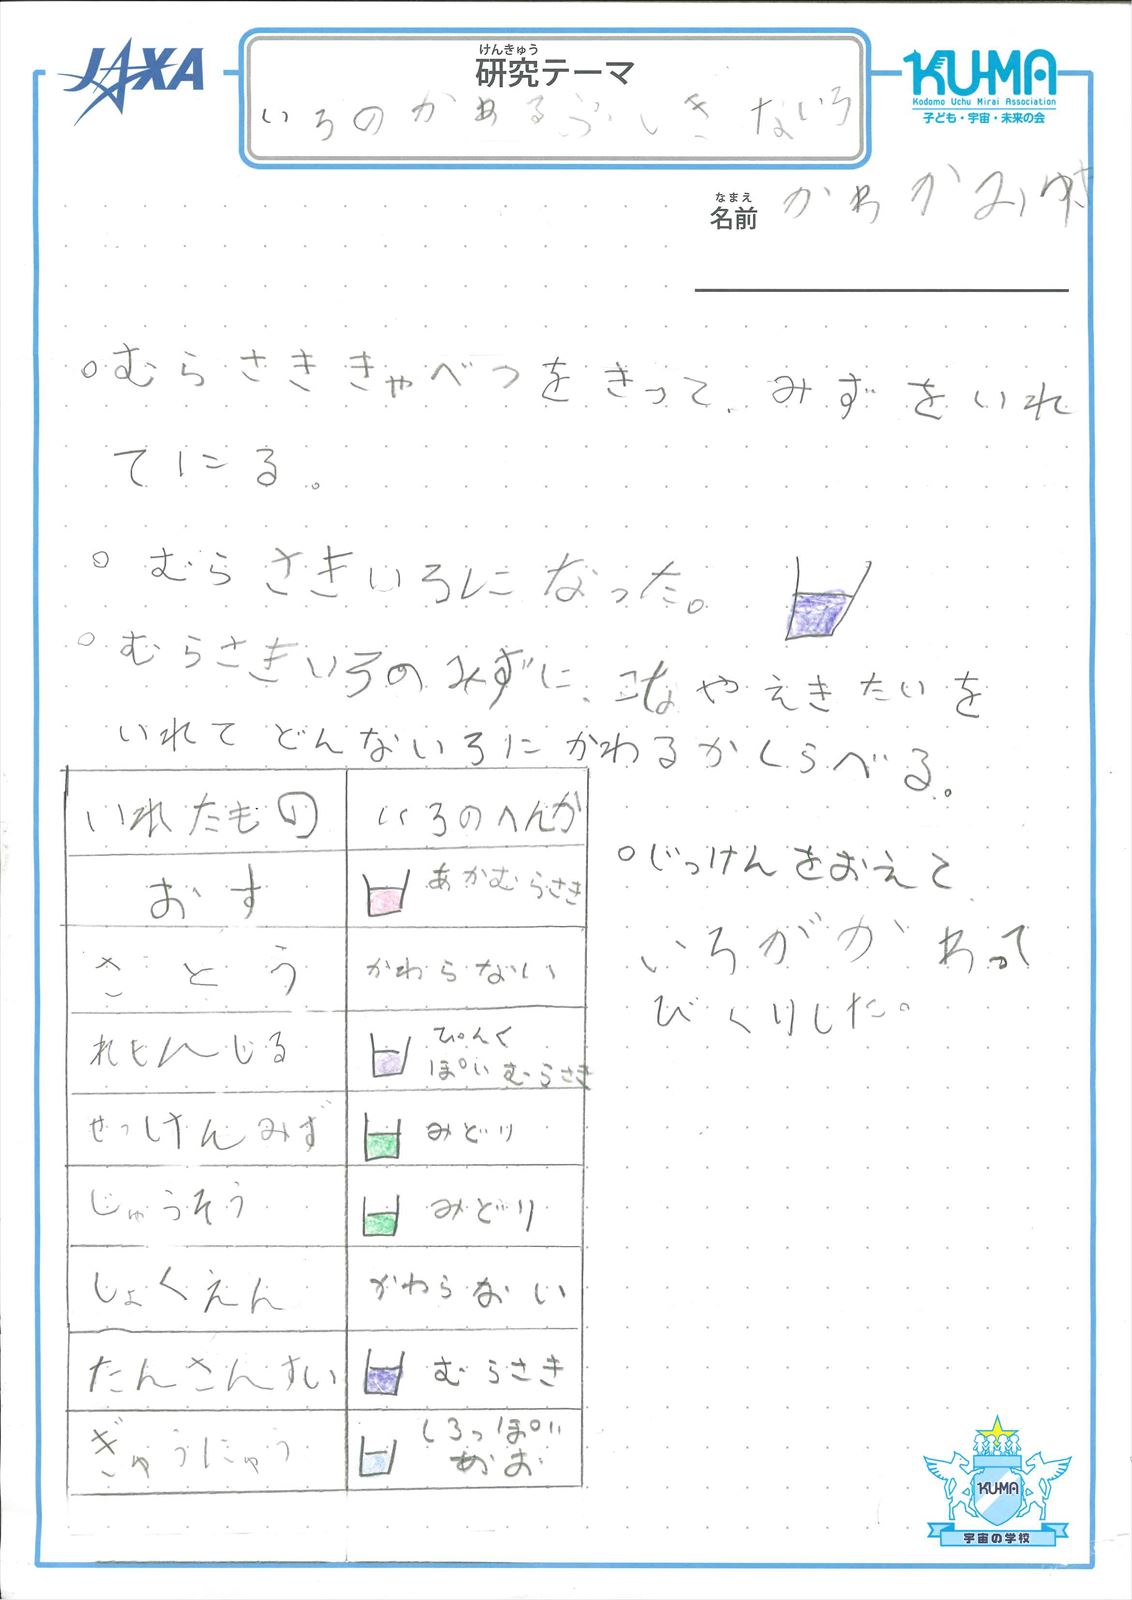 JAXA
けんきゅう
研究テーマ
いろのかあるふしきないろ
KU-MA
Kodomo Uchu Mirai Association
子ども・宇宙・未来の会
なまえ
名前
かわかみ
○むらさききゃべつをきって、みずをいれ
てにる。
○むらさきいろになった。
○むらさきいろのみずに、こなやえきたいを
いれてどんないろにかわるかくらべる。
いれたもの いろのへんか
おす あかむらさき
さとう かわらない
れもんじる ぴんく
ぽいむらさき
せっけんみず みどり
じゅうそう みどり
しょくえん かわらない
たんさんすい むらさき
ぎゅうにゅう しろっぽい
あお
○じっけんをおえて
いろがかわって
びくりした。
KU-MA
宇宙の学校